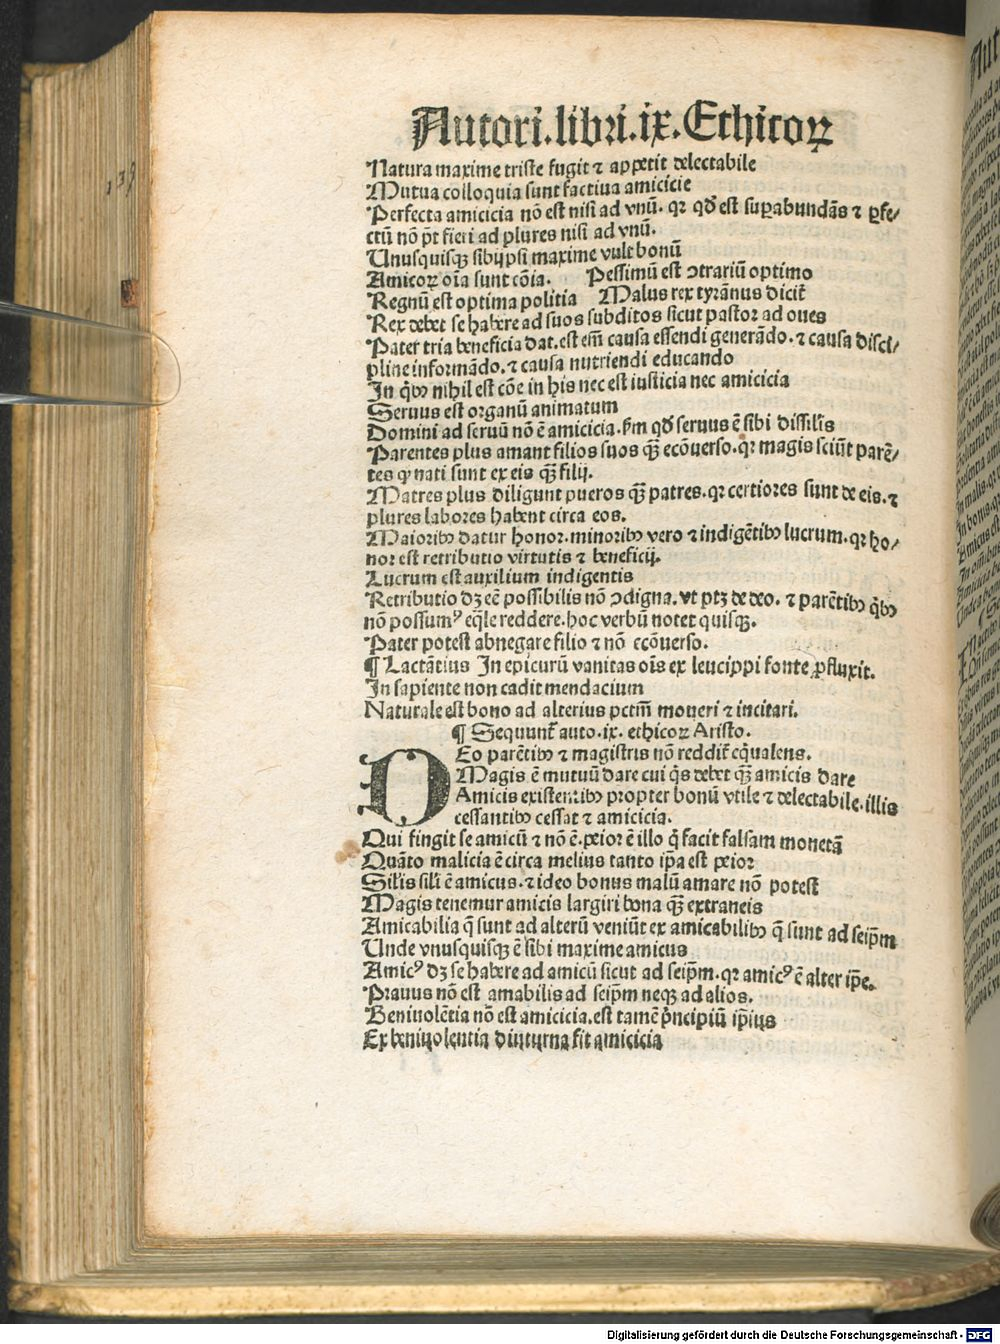 Autori. libri. ix. Ethicoꝝ
Natura maxime triste fugit ⁊ appetit delectabile
Mutua colloquia sunt factiua amicicie
Perfecta amicicia nō est nisi ad vnū. qꝛ qđ est suꝑabundās ⁊ ꝑfe/
ctū nō pt̄ fieri ad plures nisi ad vnū.
Unusquisqꝫ sibijpsi maxime vult bonū
Amicoꝝ oīa sunt cōia. Pessimū est ↄtrariū optimo
Regnū est optima politia Malus rex tyrānus dicit᷑
Rex debet se habere ad suos subditos sicut pastor ad oues
Pater tria beneficia dat. est em̄ causa essendi generādo. ⁊ causa disci/
pline informādo. ⁊ causa nutriendi educando
In q̇bꝰ nihil est cōe in his nec est iusticia nec amicicia
Seruus est organū animatum
Domini ad seruū nō ē amicicia. ẜm qđ seruus ē sibi dissilis
Parentes plus amant filios suos qꝫ̄ ecōuerso. qꝛ magis sciūt parē/
tes ꝙ nati sunt ex eis qꝫ̄ filij.
Matres plus diligunt pueros qꝫ̄ patres. qꝛ certiores sunt de eis. ⁊
plures labores habent circa eos.
Maioribꝰ datur honor. minoribꝰ vero ⁊ indigētibꝰ lucrum. qꝛ ho/
nor est retributio virtutis ⁊ beneficij.
Lucrum est auxilium indigentis
Retributio dꝫ eē possibilis nō ↄdigna. vt ptꝫ de deo. ⁊ parētibꝰ q̇bꝰ
nō possumꝰ eq̄le reddere. hoc verbū notet quisqꝫ.
Pater potest abnegare filio ⁊ nō ecōuerso.
¶ Lactātius In epicurū vanitas oīs ex leucippi fonte ꝓfluxit.
In sapiente non cadit mendacium
Naturale est bono ad alterius pctm̄ moueri ⁊ incitari.
¶ Sequunt᷑ auto. ix. ethicoꝝ Aristo.
DEo parētibꝰ ⁊ magistris nō reddit᷑ eq̄ualens.
Magis ē mutuū dare cui q̇s debet qꝫ̄ amicis dare
Amicis existentibꝰ propter bonū vtile ⁊ delectabile. illis
cessantibꝰ cessat ⁊ amicicia.
Qui fingit se amicū ⁊ nō ē. peior ē illo q̇ facit falsam monetā
Quāto malicia ē circa melius tanto ip̄a est peior
Silis sili ē amicus. ⁊ ideo bonus malū amare nō potest
Magis tenemur amicis largiri bona qꝫ̄ extraneis
Amicabilia q̄ sunt ad alterū veniūt ex amicabilibꝰ q̄ sunt ad seip̄m
Unde vnusquisqꝫ ē sibi maxime amicus
Amicꝰ dꝫ se habere ad amicū sicut ad seip̄m. qꝛ amicꝰ ē alter ip̄e.
Prauus nō est amabilis ad seip̄m neqꝫ ad alios.
Beniuolētia nō est amicicia. est tamē ṗncipiū ip̄ius
Ex beniuolentia diuturna fit amicicia
139
Digitalisierung gefördert durch die Deutsche Forschungsgemeinschaft - DFG